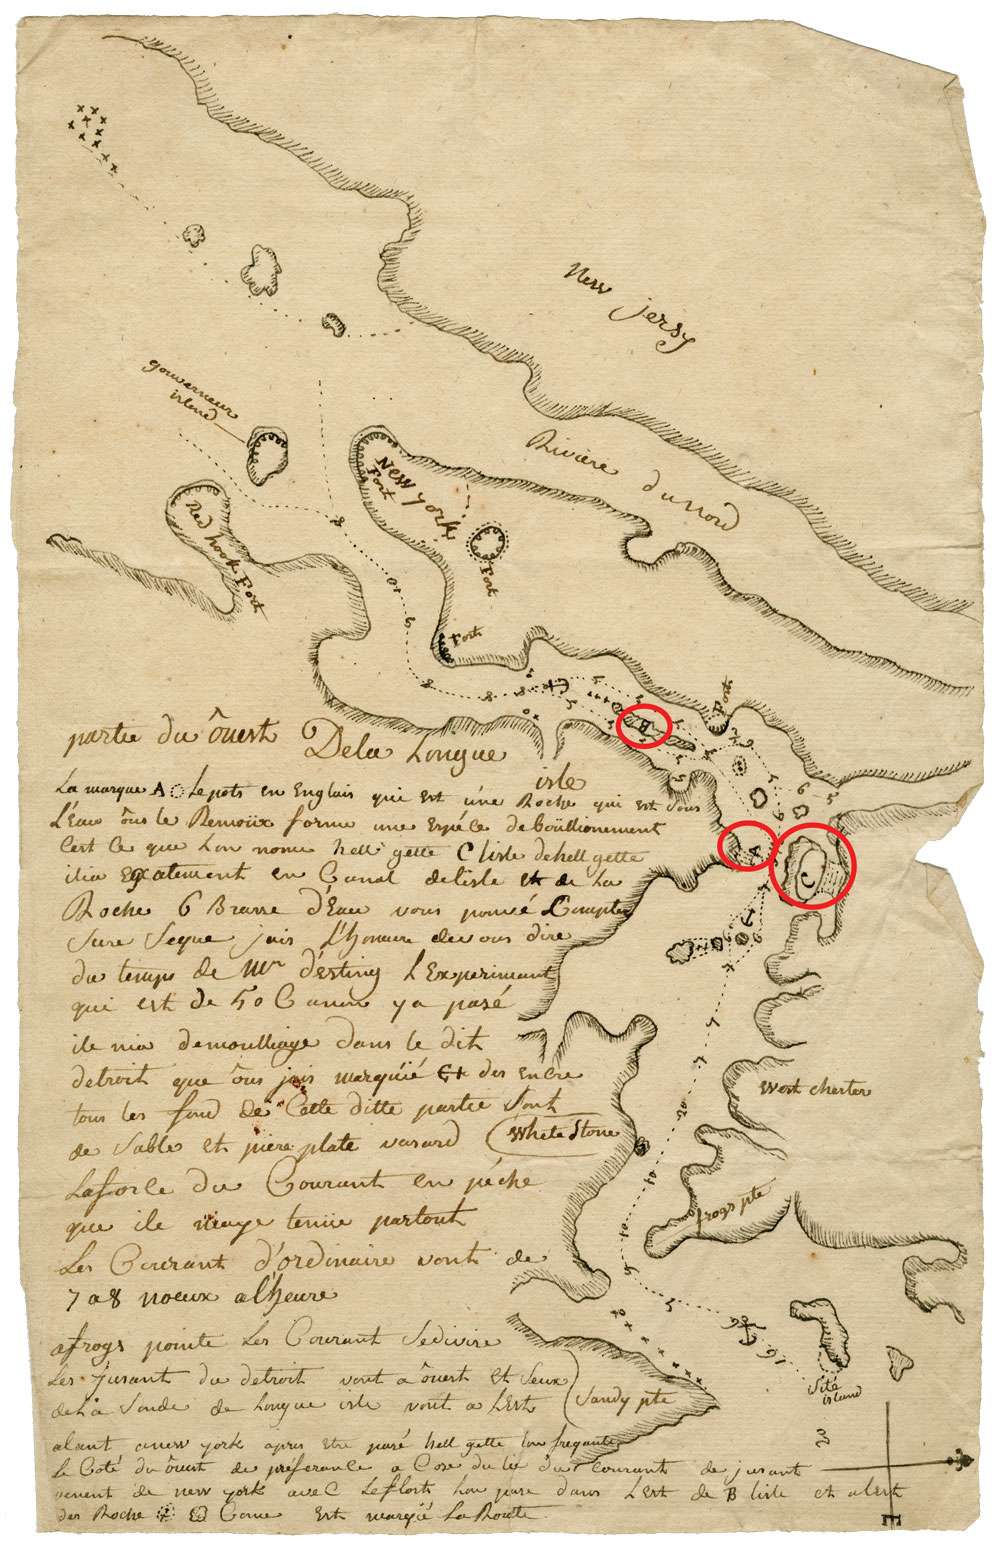 New jersey
gouverneur
island
Rivière du Nord
New york
Fort
Red hook Fort
Fort
Fort
Fort
B
A
C
partie du ôuest Dela Longue
isle
La marque A Lepots en Englais qui est une Roche qui est Sous
L'Eau ôus le Remoux forme une Espéce de boüllionement
C'est ce que Lon nome hell gette C L'isle de hell gette
ilia Egatement en Canal de lisle et de La
Roche 6 Brasse d'Eau vous pouvé Compter
Sure Seque jais L'honure de vous dire
du temps de Mr d'esting L'Experimant
qui est de 50 Canon ya pasé
ile nia demoulliage dans le dit
detroit que ôus jais marquié des encre
tous les fond de Cette ditte partie Sont
de Sable et piere plate vasard
White Stone
West chester
frogs pte
La force du Courant en péche
que ile naye tenüe partout
Les Courant d'ordinaire vont de
7 a 8 noeux alheure
afrogs pointe Les Courant Sedivise
Les jusant du detroit vont a ôuest et Seux
de La Sonde de Longue isle vont a L'Est
Sandy pte
Sité
island
alant anew york apres etre pasé hell gette lon fregante
Le Coté du ôuest de preferance a Cose du lit du Courant de jusant
venent de new york avec Leflots Lon pase dans L'Est de B lisle et alest
des Roche Come Est marqué La Routte
E